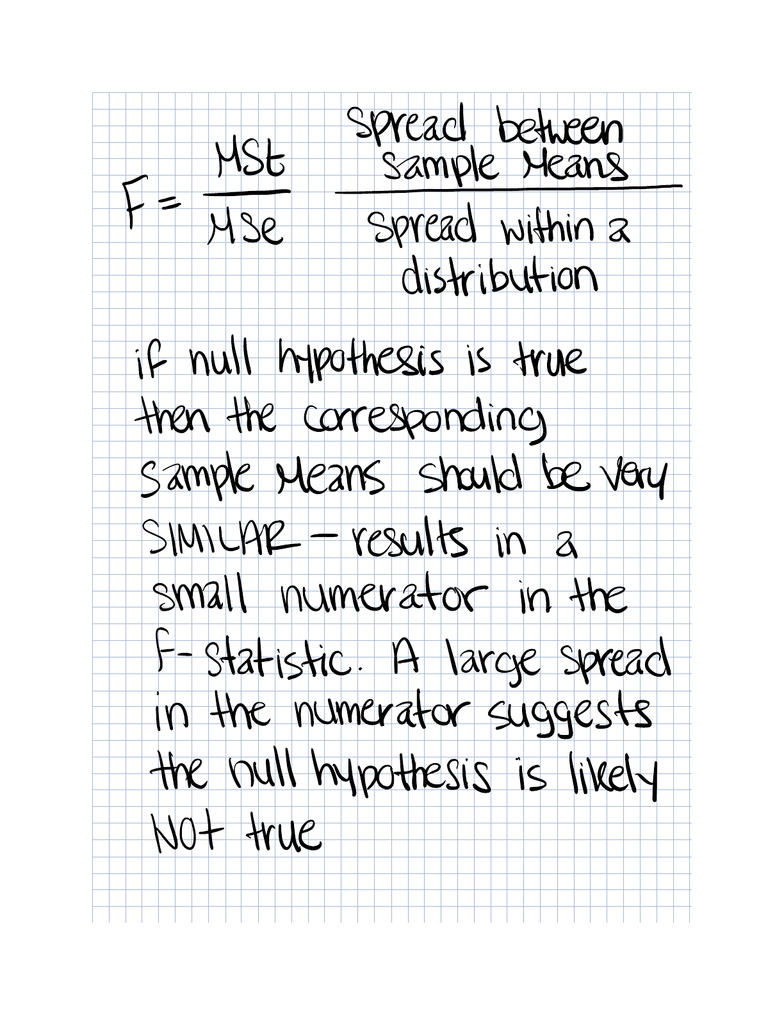 F = MSt / MSe
Spread between
Sample Means
Spread within a
distribution
if null hypothesis is true
then the corresponding
Sample Means should be very
SIMILAR - results in a
small numerator in the
F-Statistic. A large spread
in the numerator suggests
the null hypothesis is likely
NOt true